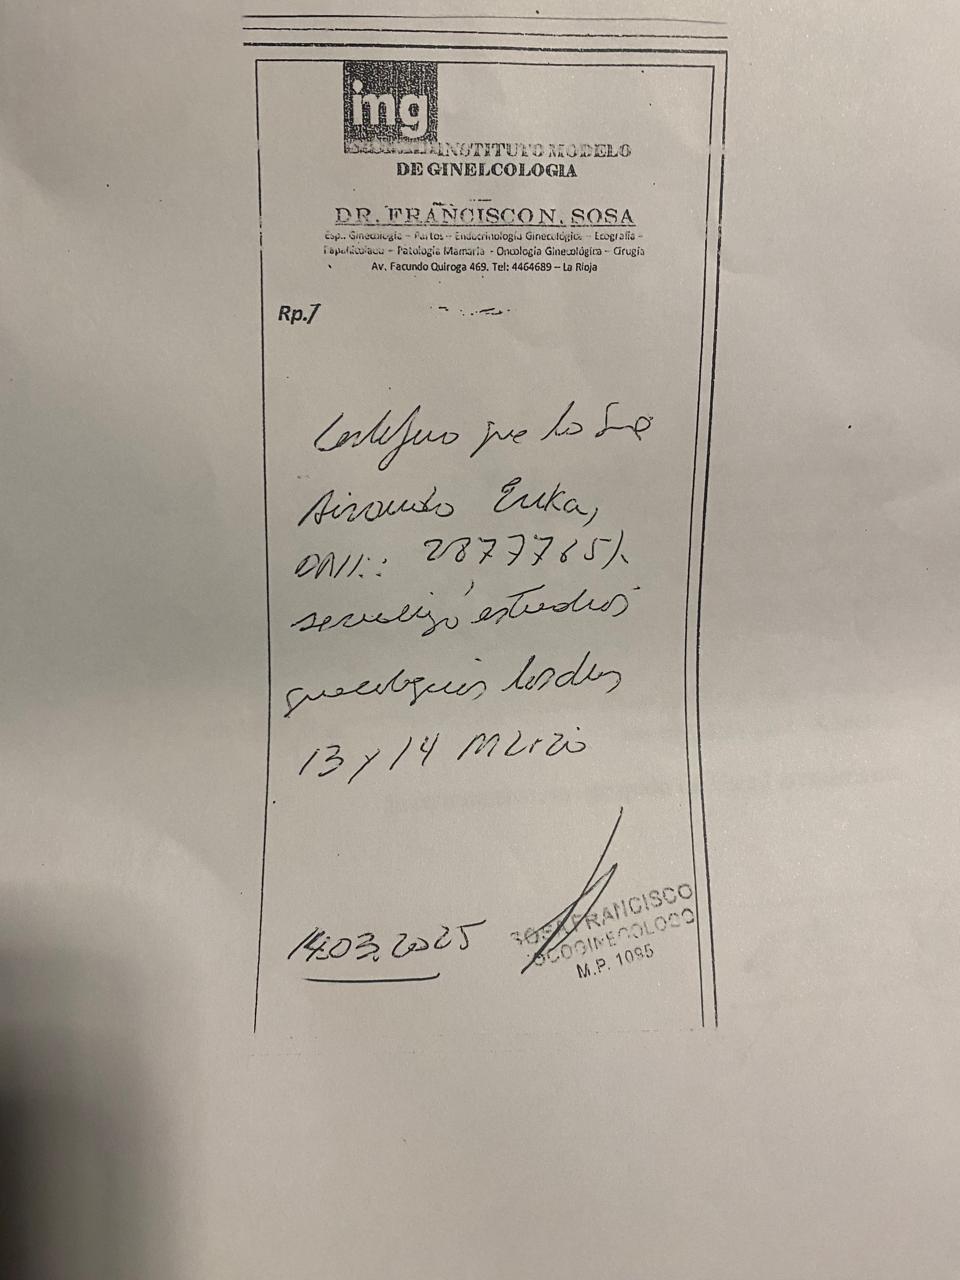 img
INSTITUTO MODELO
DE GINELCOLOGIA
DR. FRANCISCO N. SOSA
Esp.. Ginecología – Partos – Endocrinología Ginecológica – Ecografía –
Papanicolaou – Patología Mamaria - Oncología Ginecológica – Cirugía
Av. Facundo Quiroga 469. Tel: 4464689 – La Rioja
Rp./
Certifico que la Sra
Erika,
DNI:
se realizó estudios
ginecológicos los días
13 y 14 Marzo
14.03.2025
SOSA FRANCISCO
TOCOGINECOLOGO
M.P. 1095